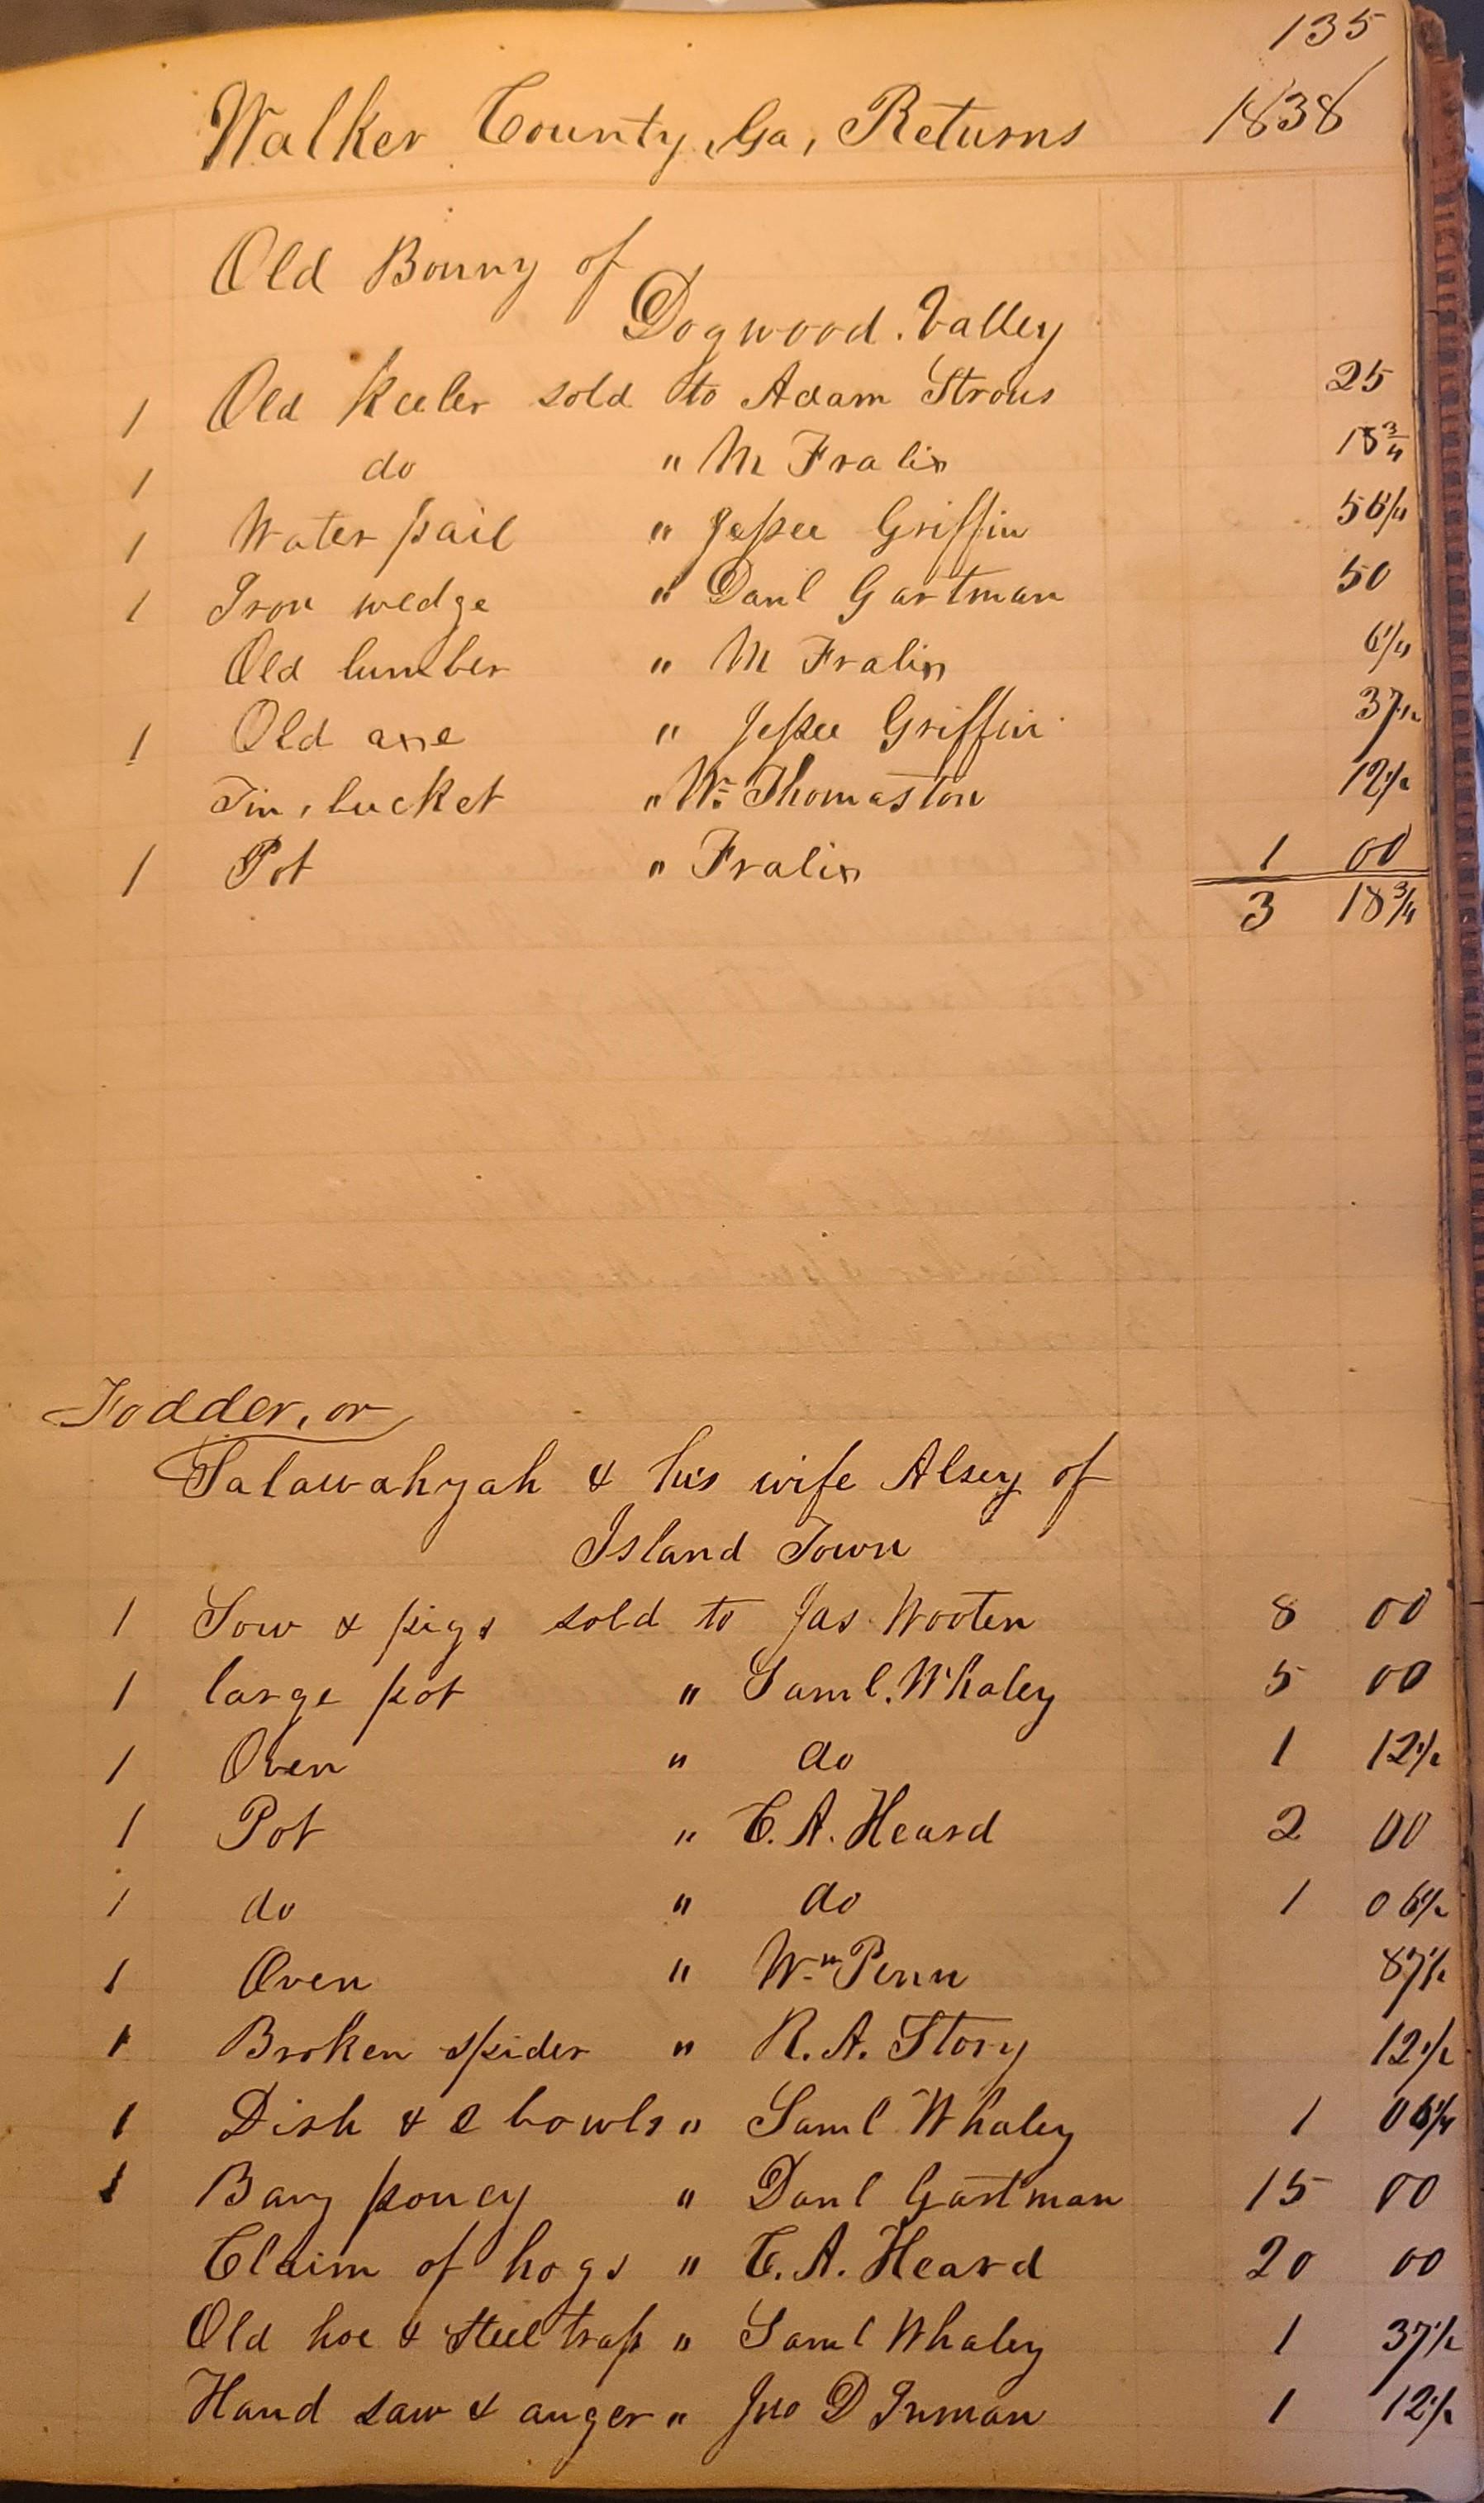 135
Walker County, Ga, Returns 1838
Old Bonny of
Dogwood. Valley
1 Old Keeler sold to Adam Strous 25
1 do " M Fralix 18 3/4
1 Water pail " Jessee Griffin 56 1/4
1 Iron wedge " Danl Gartman 50
Old lumber " M Fralix 6 1/4
1 Old axe " Jessee Griffin 37 1/2
Tin, bucket " Wm Thomaston 12 1/2
1 Pot " Fralix 1 00
3 18 3/4
Fodder, or
Talawahyah & his wife Alsey of
Island Town
1 Sow & pigs sold to Jas Wooten 8 00
1 large pot " Saml. Whaley 5 00
1 Oven " do 1 12 1/2
1 Pot " C. A. Heard 2 00
1 do " do 1 06 1/2
1 Oven " Wm Penn 87 1/2
1 Broken spider " R. A. Story 12 1/2
1 Dish & 2 bowls " Saml Whaley 1 06 1/4
1 Bay poney " Danl Gartman 15 00
Claim of hogs " C. A. Heard 20 00
Old hoe & Steel trap " Saml Whaley 1 37 1/2
Hand saw & auger " Jno D Inman 1 12 1/2